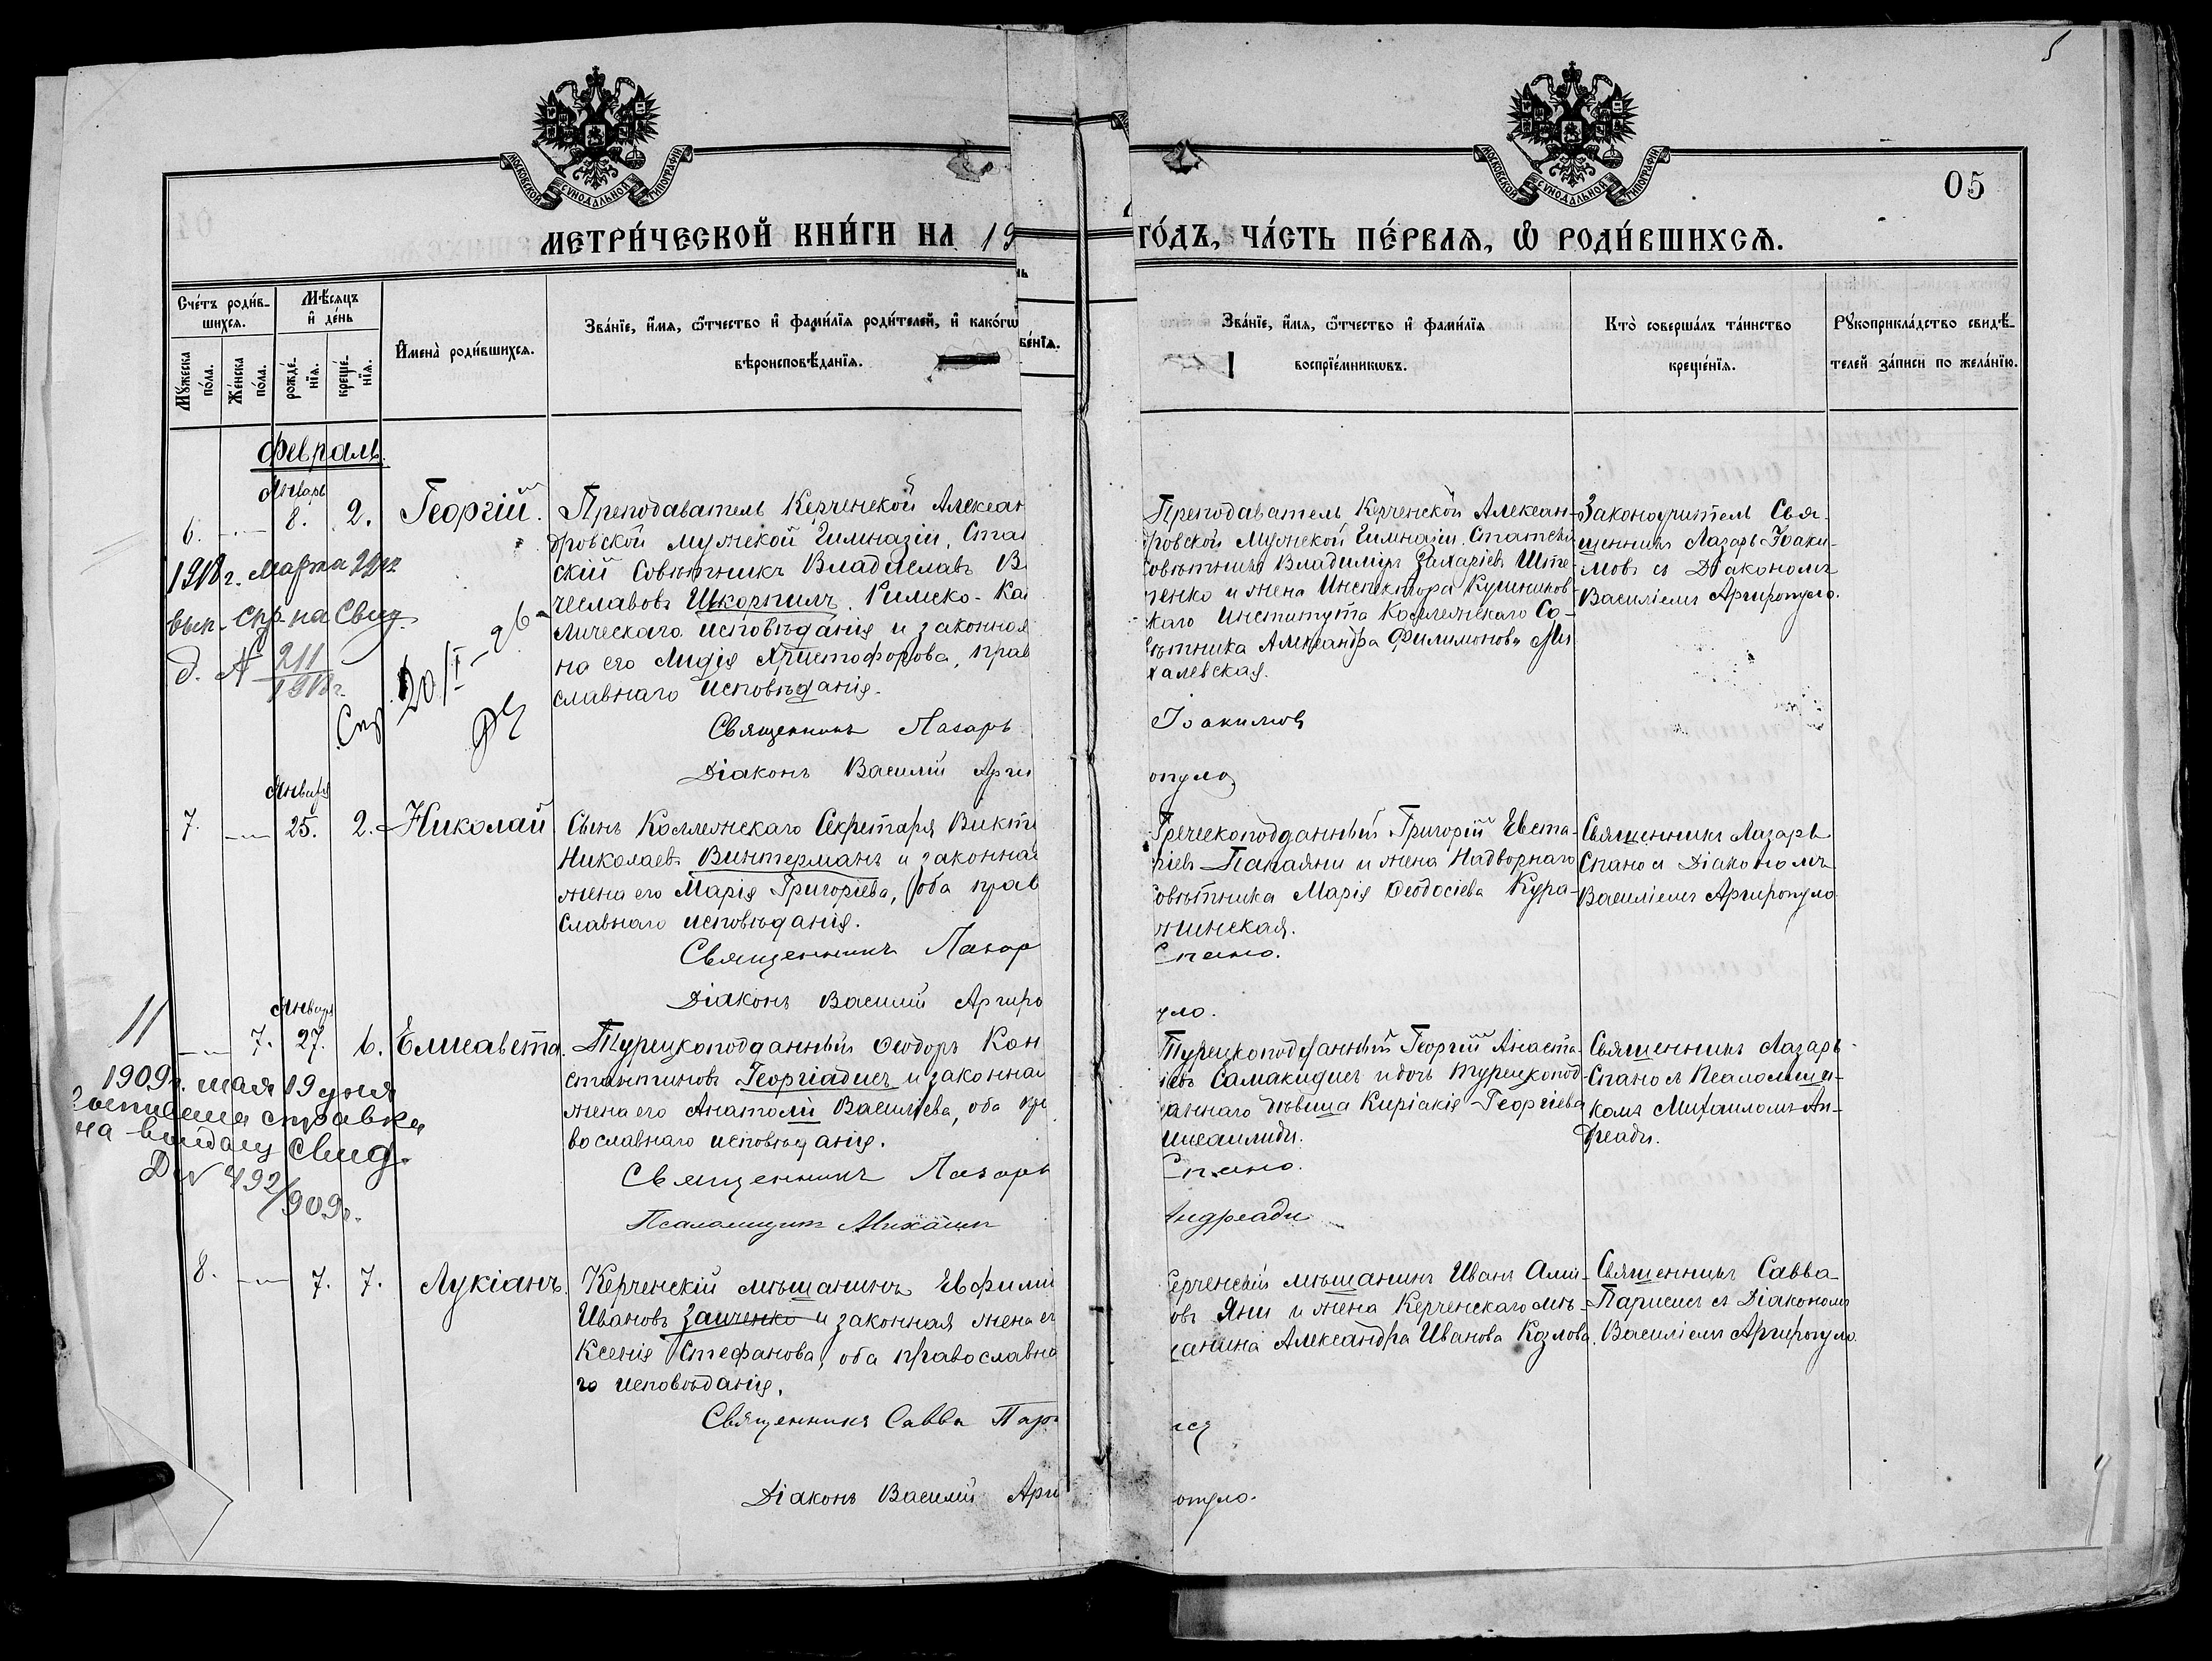 5
МОСКОВСКОЙ СѴНОДАЛЬНОЙ ТИПОГРАФІИ
МОСКОВСКОЙ СѴНОДАЛЬНОЙ ТИПОГРАФІИ
05
МЕТРИ́ЧЕСКОЙ КНИ́ГИ НА 19
ГО́ДЪ, ЧА́СТЬ ПЕ́РВАѦ, Ѡ҆ РОДИ́ВШИХСѦ.
Сче́тъ роди́в-
шихсѧ.
Мѣ́сѧцъ
и҆ де́нь
Мꙋ́жеска
по́ла.
Же́нска
по́ла.
рожде́-
нїѧ.
креще́-
нїѧ.
И҆мена̀ роди́вшихсѧ.
Зва́нїе, и҆́мѧ, ѻ҆́тчество и҆ фами́лїѧ роди́телей, и҆ како́гѡ
вѣроисповѣ́данїѧ.
Зва́нїе, и҆́мѧ, ѻ҆́тчество и҆ фами́лїѧ
воспрїе́мникѡвъ.
Кто̀ соверша́лъ та́инство
креще́нїѧ.
Рꙋкоприкла́дство свидѣ́-
телей за́писи по жела́нїю.
Февраль.
Январь
6. — 8. 2. Георгій.
Преподаватель Керченской Алексан
дровской мужской Гимназіи, Стат
скій Совѣтникъ Владиславъ В
чеславовъ Шкорпилъ, Римско-Ка
лическаго исповѣданія и законная
на его Лидія Христофорова, прав
славнаго исповѣданія.
Священникъ Лазарь
Діаконъ Василій Арги
Преподаватель Керченской Алексан-
дровской Мужской Гимназіи, Статскі
Совѣтникъ Владиміръ Захаріевъ Ште-
ненко и жена Инспектора Кушников-
скаго Института Коллежскаго Со-
вѣтника Александра Филимонова Ми
халевская.
Іоакимовъ
опуло
Законоучитель Свя-
щенникъ Лазарь Іоаки-
мовъ съ Діакономъ
Василіемъ Аргиропуло.
1918г. Марта 29
вып. спр. на Свид.
д. № 211
1918г.
Спр 20/I
Января
7. — 25. 2. Николай
Сынъ Коллежскаго Секретаря Викт
Николаевъ Винтерманъ и законная
жена его Марія Григоріева, оба прав
славнаго исповѣданія.
Священникъ Лазар
Діаконъ Василій Аргиро
Греческоподданный Григорій Евста-
ѳіевъ Папаяни и жена Надворнаго
Совѣтника Марія Ѳеодосіева Кура-
жинская.
Спано.
уло.
Священникъ Лазарь
Спано съ Діакономъ
Василіемъ Аргиропуло
11
Январь
— 7. 27. 6. Елисавета.
Турецкоподданный Ѳеодоръ Кон
стантиновъ Георгіадисъ и законная
жена его Анатоли Василіева, оба пр
вославнаго исповѣданія.
Священникъ Лазарь
Псаломщикъ Михаилъ
Турецкоподданный Георгій Анаста-
іевъ Самакидисъ и дочь турецкопод-
даннаго дѣвица Киріакія Георгіева
Спано.
Андреади
Священникъ Лазарь
Спано съ Псаломщи-
комъ Михаиломъ Ан-
дреади.
1909г. мая 19 дня
справка
на выдачу свид.
Д № 492/909г.
8. — 7. 7. Лукіанъ.
Керченскій мѣщанинъ Евфимі
Ивановъ Заиченко и законная жена ег
Ксенія Стефанова, оба православна
го исповѣданія.
Священникъ Савва Пар
Діаконъ Василій Арги
Керченскій мѣщанинъ Иванъ Алій-
овъ Яни и жена Керченскаго мѣ-
щанина Александра Иванова Козлова.
опуло.
Священникъ Савва
Парисисъ съ Діакономъ
Василіемъ Аргиропуло.